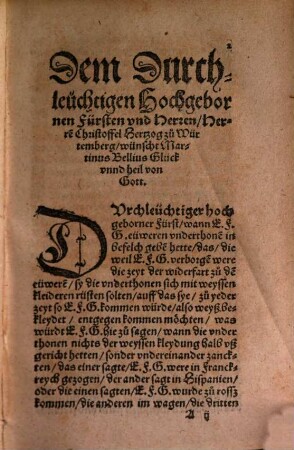 2
Dem Durch-
leüchtigen Hochgebor
nen Fürsten vnd Herren/Her-
rē Christoffel Hertzog zů Wür
temberg/wünscht Mar-
tinus Bellius Glück
vnnd heil von
Gott.
DVrchleüchtiger hoch
geborner Fürst/wann E.F.
G. eüweren vnderthonē in
befelch gebē hette/das/die
weil E.F.G. verborgē were
die zeyt der widerfart zů dē
eüwerē/sy die vnderthonen sich mit weyssen
kleideren rüsten solten/auff das sye/zů yeder
zeyt so E.F.G. kommen würde/also weyß be-
kleydet/entgegen kommen möchten/was
würdt E.F.G. hie zů sagen/wann die vnder
thonen nichts der weyssen kleydung halb vß
gericht hetten/sonder vndereinander zanck-
ten/das einer sagte/E.F.G. were in Franck-
reych gezogen/der ander sagt in Hispanien/
oder die einen sagten/E.F.G. wurde zů rossz
kommen/die anderen im wagen/die dritten
A ij